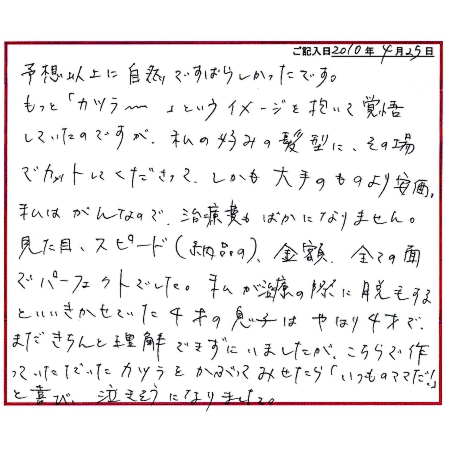 ご記入日2010年4月25日
予想以上に自然ですばらしかったです。
もっと「カツラ〜〜」というイメージを抱いて覚悟
していたのですが、私の好みの髪型に、その場
でカットしてくださって、しかも大手のものより安価。
私はがんなので、治療費もばかになりません。
見た目、スピード(納品の)、金額、全ての面
でパーフェクトでした。私が治療の際に脱毛する
といいきかせていた4才の息子はやはり4才で、
まだきちんと理解できずにいましたが、こちらで作
っていただいたカツラをかぶってみせたら「いつものママだ!」
と喜び、泣きそうになりました。